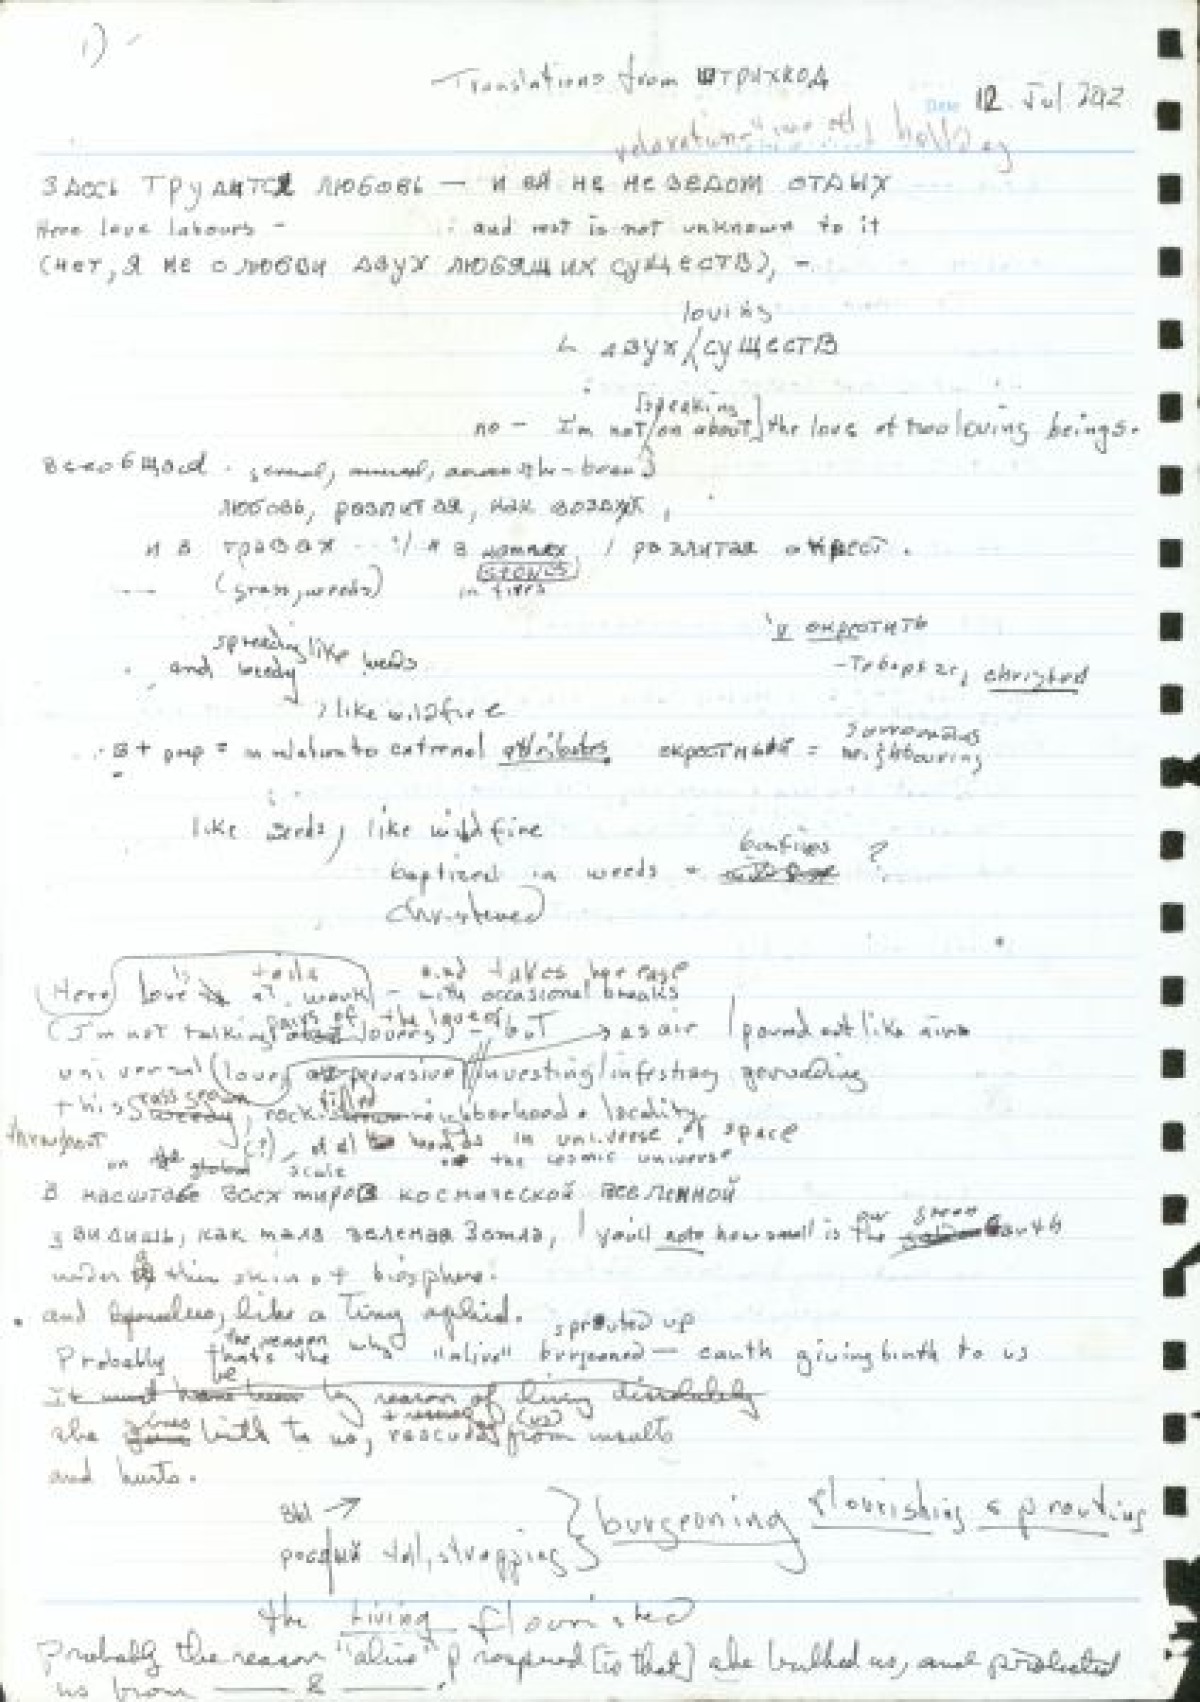 1) -
Translations from ШТРИХКОД
Date 12 Jul 2012
relaxation time off holiday
ЗДЕСЬ ТРУДИТСЯ ЛЮБОВЬ — И ЕЙ НЕ НЕВЕДОМ ОТДЫХ
Here love labours - and rest is not unknown to it
(НЕТ, Я НЕ О ЛЮБВИ ДВУХ ЛЮБЯЩИХ СУЩЕСТВ), -
loving
ДВУХ / СУЩЕСТВ
[speaking
no - I'm not / on about] the love of two loving beings.
всеобщая - general,
ЛЮБОВЬ, РАЗЛИТАЯ, КАК ВОЗДУХ,
И В ТРАВАХ И В КАМНЯХ, / РАЗЛИТАЯ ОКРЕСТ.
(grass, weeds) stones
in fires
окрестить
spreading like weeds
and weedy
christed
like wildfire
В + prep = in relation to external attributes. окрестный = surrounding
neighbouring
like weeds, like wildfire
bonfires ?
baptized in weeds +
christened
toils and takes her ease
(Here) love is at work - with occasional breaks
pairs of the love of
(I'm not talking about lovers) - but as air / poured out like
universal (love) pervasive / investing / infesting pervading
grass grown filled
this weedy, rock neighborhood + locality.
throughout of all worlds in universe of space
on the global (?) scale the cosmic universe
В МАСШТАБЕ ВСЕХ МИРОВ КОСМИЧЕСКОЙ ВСЕЛЕННОЙ
our green
УВИДИШЬ, КАК МАЛА ЗЕЛЕНАЯ ЗЕМЛЯ, / you'll note how small is the Earth
under a thin skin of biosphere.
and like a tiny aphid.
the reason why sprouted up
Probably that's the "alive" burgeoned — earth giving birth to us
be
It must have been by reason of living dissolutely
gives (us)
she birth to us, rescues from insults
and hurts.
вы →
рослый tall, strapping } burgeoning flourishing sprouting
the Living flourished
Probably the reason "alive" prospered [is that] she bulked us, and protected
us from —— & ——.